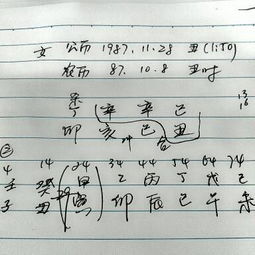 女 公历 1987.11.28 丑(1:10)
农历 87.10.8 丑时
辛 辛 己
卯 亥 冲 巳 合 丑
4 14 24 34 44 54 64 74
壬 癸 甲 乙 丙 丁 戊 己
子 丑 寅 卯 辰 巳 午 未